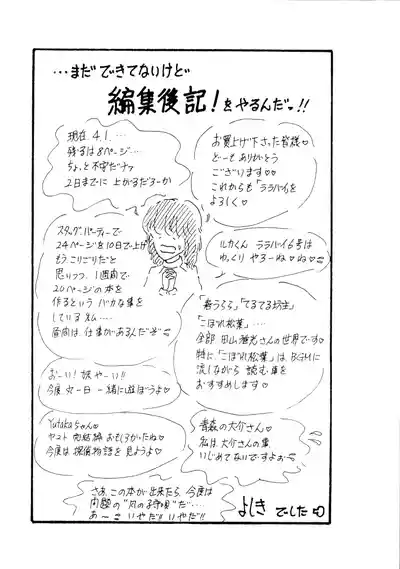 …まだできてないけど
編集後記!をやるんだー!!
現在 4.1.…
残るは8ページ…
ちょっと不安だナァ
2日までに上がるだろーか
お買上げ下さった皆様♡
どーもありがとう
ございます♡♡
これからも「ララバイ」を
よろしく♡
スタッグ・パーティーで
24ページを10日で上げ
もうこりごりだと
思いつつ、1週間で
20ページの本を
作るという バカな事を
している私…
昼間は仕事があるんだぞ
ルカくん ララバイ6号は
ゆっくり やろーね♡ね♡
「春うらら」「てるてる坊主」
「こぼれ松葉」…
全部 田山雅充さんの世界です♡
特に「こぼれ松葉」は BGMに
流しながら 読む事を
おすすめします♡
おーい!妖やーい!!
今度 丸一日 一緒に遊ぼうよ♡
Yutakaちゃん♡
ヤマト 完結編 おもしろかったね♡
今度は 探偵物語を 見ようよ♡
青森の大介さん♡
私は 大介さんの事
いじめてないですよぉ~♡
さあ、この本が出来たら、今度は
問題の
あーこいやだ!!いやだ!!
よしき でした